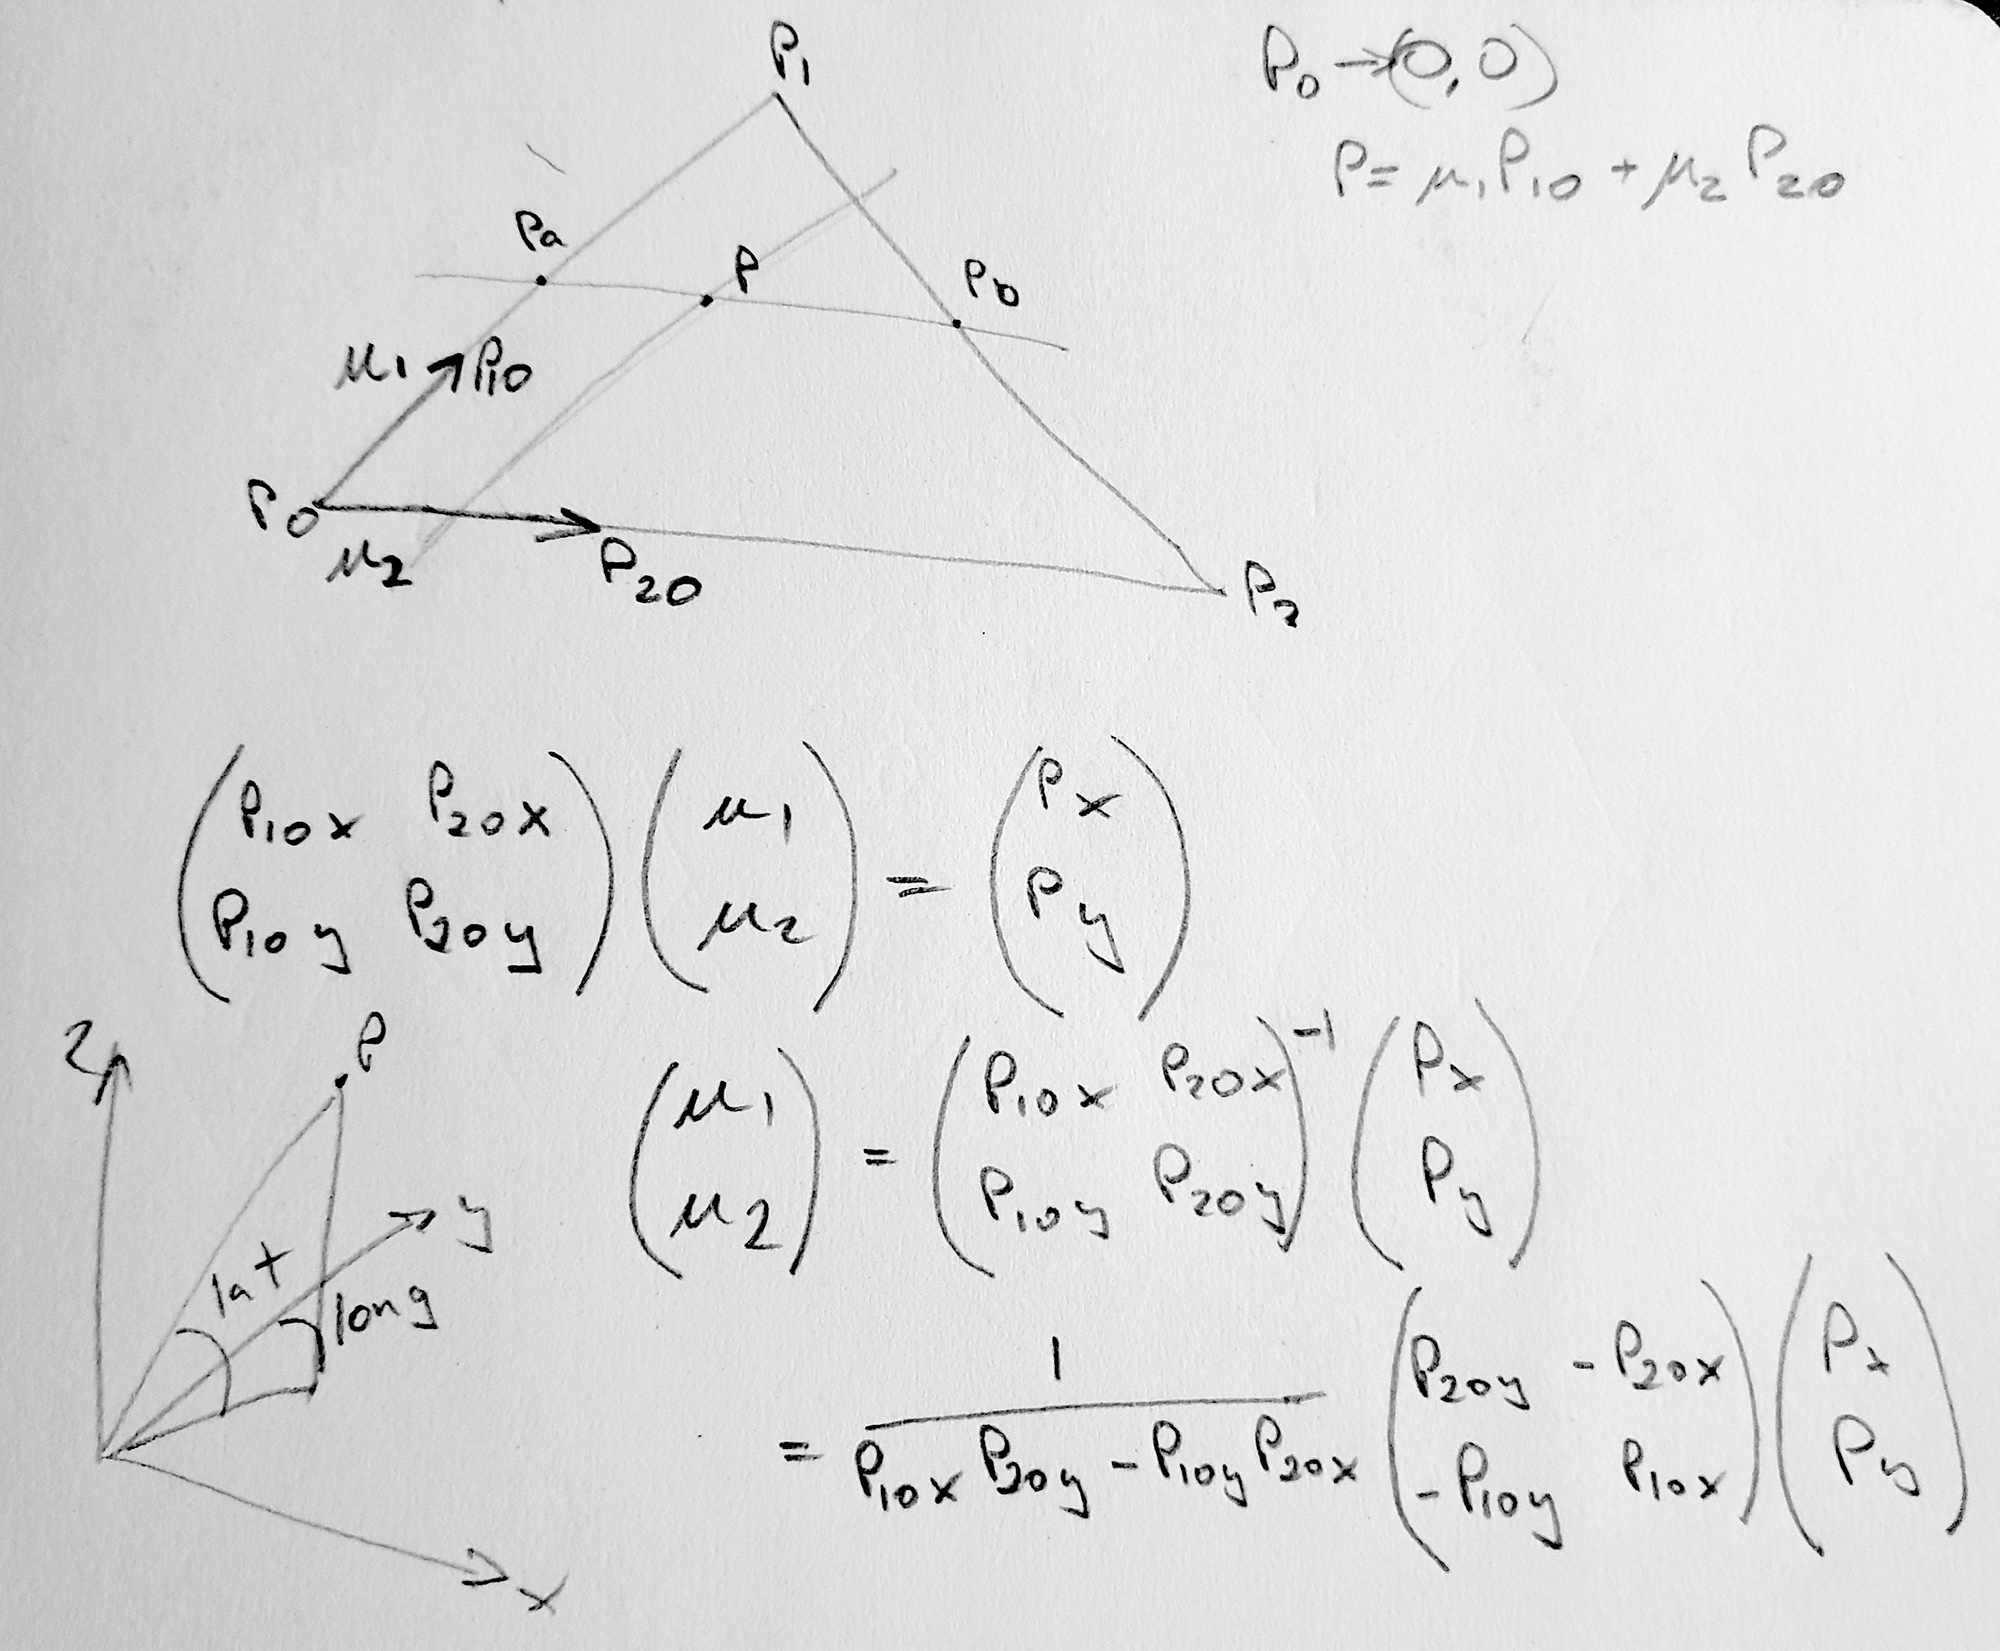 P₁
P₀ → (0, 0)
P = μ₁P₁₀ + μ₂P₂₀
Pa
P
Pb
μ₁ P₁₀
P₀
μ₂
P₂₀
P₂
(P₁₀x P₂₀x) (μ₁) = (Px)
(P₁₀y P₂₀y) (μ₂) (Py)
z
P
y
lat
long
x
(μ₁) = (P₁₀x P₂₀x)⁻¹ (Px)
(μ₂) (P₁₀y P₂₀y) (Py)
= 1 / (P₁₀x P₂₀y - P₁₀y P₂₀x) (P₂₀y -P₂₀x) (Px)
(-P₁₀y P₁₀x) (Py)